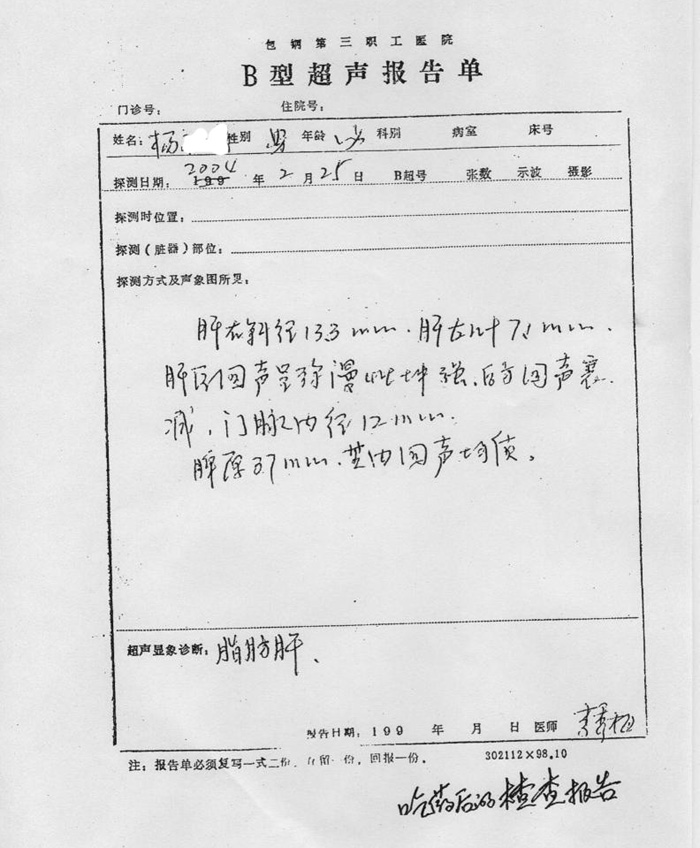 包钢第三职工医院
B型超声报告单
门诊号： 住院号：
姓名：杨 性别 男 年龄 科别 病室 床号
探测日期：199 2004 年 2 月 25 日 B超号 张数 示波 摄影
探测时位置：
探测（脏器）部位：
探测方式及声象图所见：
肝右斜径133mm．肝左叶71mm．
肝区回声呈弥漫性增强，后方回声衰
减，门脉内径12mm．
脾厚37mm．其内回声均质。
超声显象诊断：脂肪肝、
报告日期：199 年 月 日 医师
注：报告单必须复写一式二份，自留一份，回报一份． 302112×98.10
吃药后的检查报告